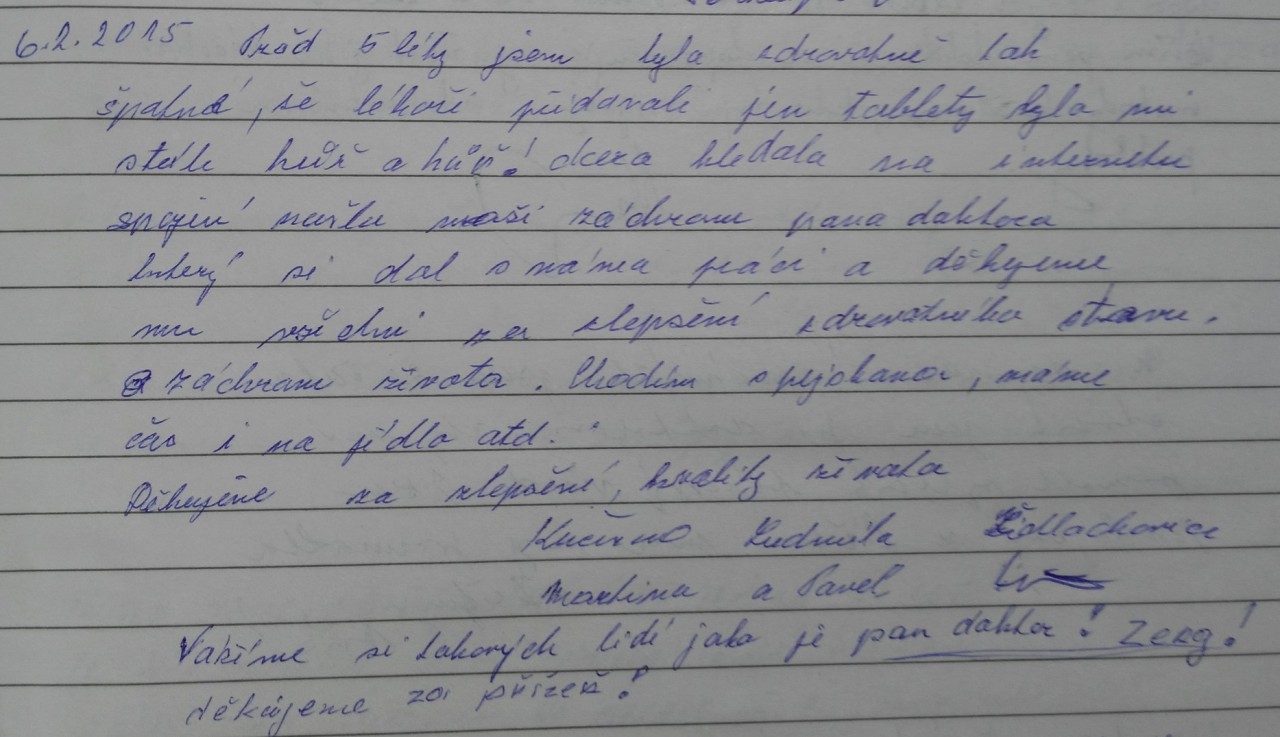 6.2.2015 Před 5 léty jsem byla zdravotně tak
špatná, že lékaři přidavali jen tablety byla mi
stále hůř a hůř! dcera hledala na internetu
spojení našla naši záchranu pana doktora
který si dal s náma práci a děkujeme
mu všichni za zlepšení zdravotního stavu.
a záchranu života. Chodím s pejskama, máme
čas i na jídlo atd.
Děkujeme za zlepšení, kvality života
Ludmila Židlochovice
Martina a Pavel
Vážíme si takových lidí jako je pan doktor! Zerg!
děkujeme za